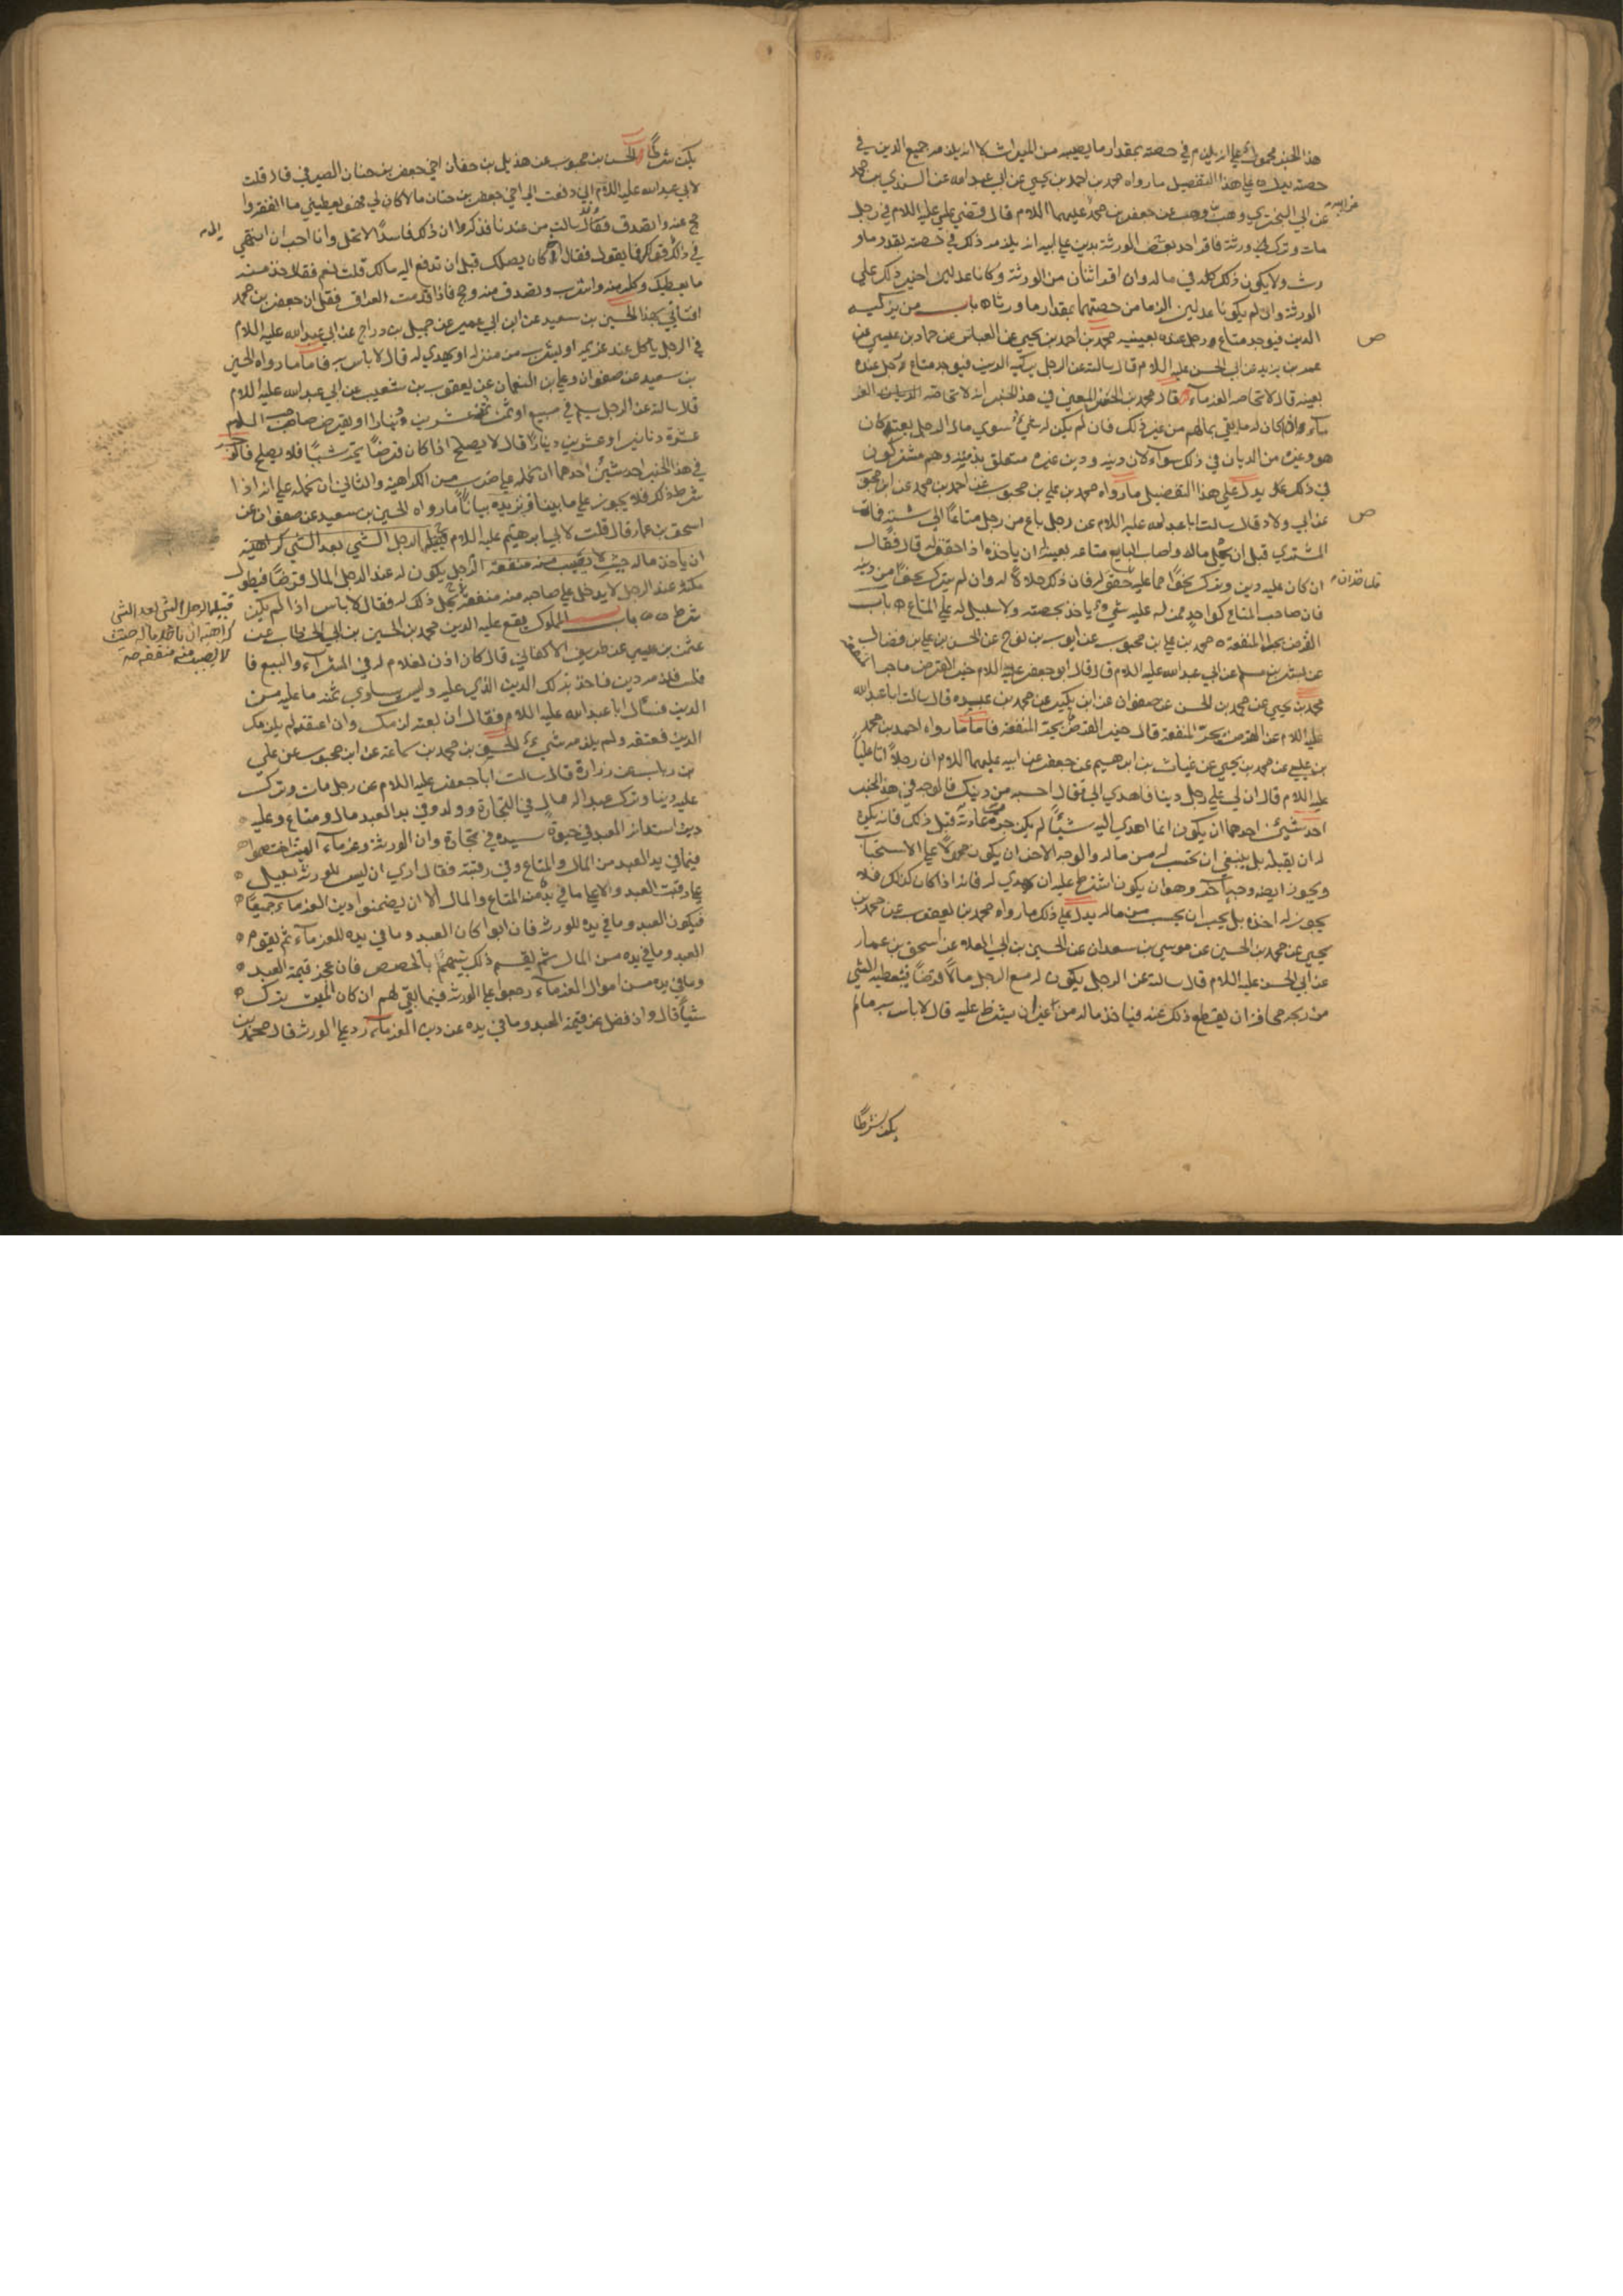 هذا الخبر محمول على انه يلزم في حصته بمقدار ما يصيبه من الميراث لا انه يلزمه جميع الدين في
حصته يدل على هذا التفصيل ما رواه محمد بن احمد بن يحيى عن ابي عبد الله عن السندي بن محمد
عن ابي البختري وهب بن وهب عن جعفر بن محمد عن ابيه عليهما اللام قال قضى علي عليه اللام في رجل
مات وترك ورثة فاقر احد بعض الورثة بدين على ابيه انه يلزمه ذلك في حصته بقدر ما و
رث ولا يكون ذلك كله في ماله وان اقر اثنان من الورثة وكانا عدلين اجيز ذلك على
الورثة وان لم يكونا عدلين الزما من حصتهما بمقدار ما ورثا باب من يركبه
الدين فيوجد متاع رجل عنده بعينه محمد بن احمد بن يحيى عن العباس عن حماد بن عيسى عن
عمر بن يزيد عن ابي الحسن عليه اللام قال سالته عن الرجل يركبه الدين فيوجد متاع رجل عنده
بعينه قال لا يحاصه الغرماء قال محمد بن الحسن المعنى في هذا الخبر انه لا يحاصه الغر
ماء اذا كان له ما يفي بمالهم من غير ذلك فان لم يكن له شيء سوى مال الرجل بعينه كان
هو وغيره من الديان في ذلك سواء لان دينه ودين غيره متعلق بذمته وهم مشتركون
في ذلك يدل على هذا التفصيل ما رواه محمد بن علي بن محبوب عن احمد بن محمد عن ابن محبوب
عن ابي ولاد قال سالت ابا عبد الله عليه اللام عن رجل باع من رجل متاعا الى سنة فمات
المشتري قبل ان يحل ماله واصاب البايع متاعه بعينه له ان ياخذه اذا حقق له قال فقال
ان كان عليه دين وترك نحوا مما عليه فلياخذ ان حقق له فان ذلك حلال له وان لم يترك نحوا من دينه
فان صاحب المتاع كواحد ممن له عليه شيء ياخذ بحصته ولا سبيل له على المتاع باب
القرض يجر المنفعة محمد بن علي بن محبوب عن ايوب بن نوح عن الحسن بن علي بن فضال
عن بشر بن مسلم عن ابي عبد الله عليه اللام قال قال ابو جعفر عليه اللام خير القرض ما جر المنفعة
محمد بن يحيى عن محمد بن الحسن عن صفوان عن ابن بكير عن محمد بن عبده قال سالت ابا عبد الله
عليه اللام عن القرض يجر المنفعة قال خير القرض الذي يجر المنفعة فاما ما رواه احمد بن محمد
بن عيسى عن محمد بن يحيى عن غياث بن ابرهيم عن جعفر عن ابيه عليهما اللام ان رجلا اتى عليا
عليه اللام قال ان لي على رجل دينا فاهدى الي قال احسبه من دينك فالوجه في هذا الخبر
احد شيئين احدهما ان يكون انما اهدى اليه شيئا لم يكن جرت عادته قبل ذلك فانه يكره
له ان يقبله بل ينبغي ان يحتسب له من ماله والوجه الاخر ان يكون محمولا على الاستحباب
ويجوز ايضا وجها آخر وهو ان يكون اشترط عليه ان يهدي له فانه اذا كان كذلك فلا
يجوز له اخذه بل يجب ان يحسب من ماله يدل على ذلك ما رواه محمد بن يعقوب عن محمد بن
يحيى عن محمد بن الحسين عن موسى بن سعدان عن الحسين بن ابي العلاء عن اسحق بن عمار
عن ابي الحسن عليه اللام قال سالته عن الرجل يكون له مع الرجل مالا قرضا فيعطيه الشي
من ربحه مخافة ان يقطع ذلك عنه فياخذ ماله من غير ان يشترط عليه قال لا باس به مالم
يكن شرطا
يكن شرطا الحسن بن محبوب عن هذيل بن حنان اخي جعفر بن حنان الصيرفي قال قلت
لابي عبد الله عليه اللام اني دفعت الى اخي جعفر بن حنان مالا كان لي فهو يعطيني ما انفقه وا
حج عنه واتصدق وقد سالت من عندنا فذكروا ان ذلك فاسد لا يحل وانا احب ان انتهي
في ذلك الى قولك فما تقول فقال اكان يصلك قبل ان تدفع اليه مالك قلت نعم فقال خذ منه
ما يعطيك وكل منه واشرب وتصدق منه وحج فاذا قدمت العراق فقل ان جعفر بن محمد
افتاني بهذا الحسين بن سعيد عن ابن ابي عمير عن جميل بن دراج عن ابي عبد الله عليه اللام
في الرجل ياكل عند غريمه او يشرب من منزله او يهدي له قال لا باس به فاما ما رواه الحسين
بن سعيد عن صفوان وعلي بن النعمان عن يعقوب بن شعيب عن ابي عبد الله عليه اللام
قال سالته عن الرجل يسلم في بيع او تمر عشرين دينارا ويقرض صاحب السلم
عشرة دنانير او عشرين دينارا قال لا يصلح اذا كان قرضا يجر شيئا فلا يصلح فالوجه
في هذا الخبر احد شيئين احدهما ان نحمله على ضرب من الكراهية والثاني ان نحمله على انه اذا
شرط ذلك فلا يجوز على ما بيناه يزيده بيانا ما رواه الحسين بن سعيد عن صفوان عن
اسحق بن عمار قال قلت لابي ابرهيم عليه اللام الرجل الشي بعد الشي كراهية
ان ياخذ ماله حيث لا يصيب منه منفعة الرجل يكون له عند الرجل المال قرضا فيطول
مكثه عند الرجل لا يدخل على صاحبه منه منفعة يحل ذلك له فقال لا باس اذا لم يكن
شرط باب المملوك يقع عليه الدين محمد بن الحسين بن ابي الخطاب عن
عثمن بن عيسى عن ظريف الاكفاني قال كان اذن لغلام له في الشراء والبيع فا
فلس فلزمه دين فاخذ بذلك الدين الذي عليه وليس يساوي ثمنه ما عليه من
الدين فسال ابا عبد الله عليه اللام فقال ان بعته لزمك وان اعتقته لم يلزمك
الدين فعتقه ولم يلزمه شيء الحسن بن محمد بن سماعة عن ابن محبوب عن علي
بن رباب عن زرارة قال سالت ابا جعفر عليه اللام عن رجل مات وترك
عليه دينا وترك عبدا له مال في التجارة وولد وفي يد العبد مال ومتاع وعليه
دين استدانه العبد في حيوة سيده في تجارة وان الورثة وغرماء الميت اختصموا
فيما في يد العبد من المال والمتاع وفي رقبة العبد فقال ارى ان ليس للورثة سبيل
على رقبة العبد ولا على ما في يده من المتاع والمال الا ان يضمنوا دين الغرماء جميعا
فيكون العبد وما في يده للورثة فان ابوا كان العبد وما في يده للغرماء ثم يقوم
العبد وما في يده من المال ثم يقسم ذلك بينهم بالحصص فان عجز قيمة العبد
وما في يده من اموال الغرماء رجعوا على الورثة فيما بقي لهم ان كان الميت ترك
شيئا قال وان فضل من قيمة العبد وما في يده عن دين الغرماء رد على الورثة قال محمد بن
فيتبعه الرجل الشي بعد الشي
كراهية ان ياخذ ماله حيث
لا يصيب منه منفعة صح